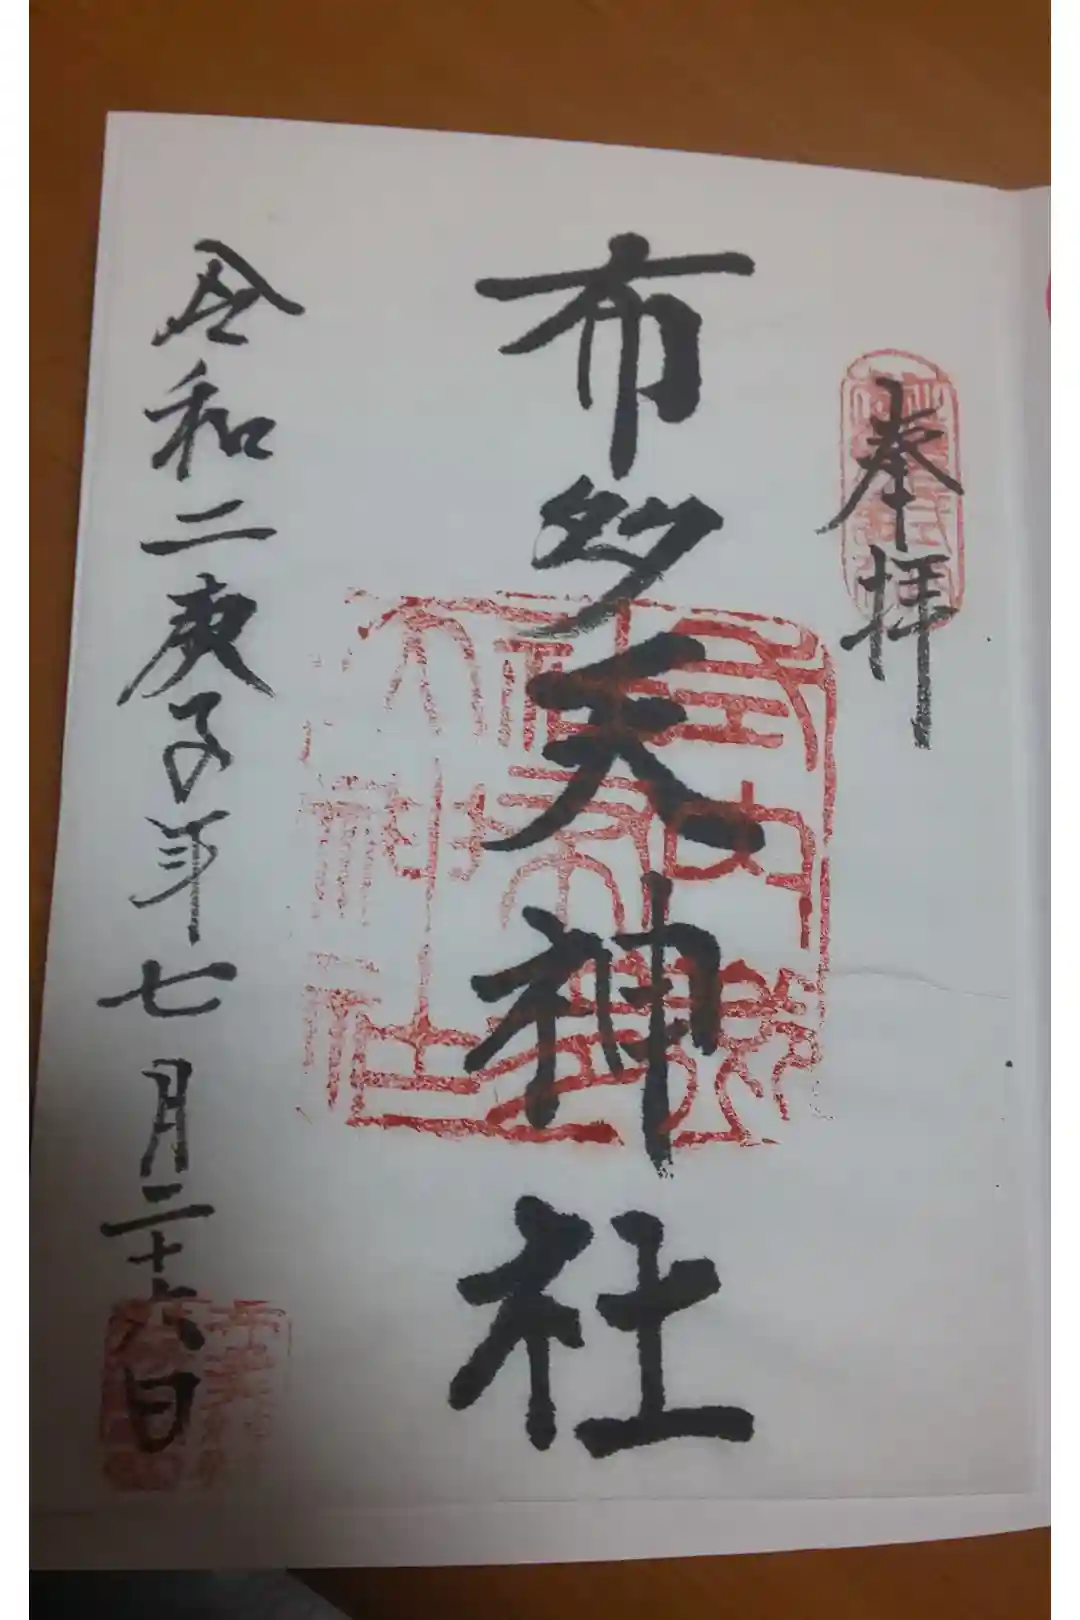 奉拝
布多天神社
令和二庚子年七月二十六日